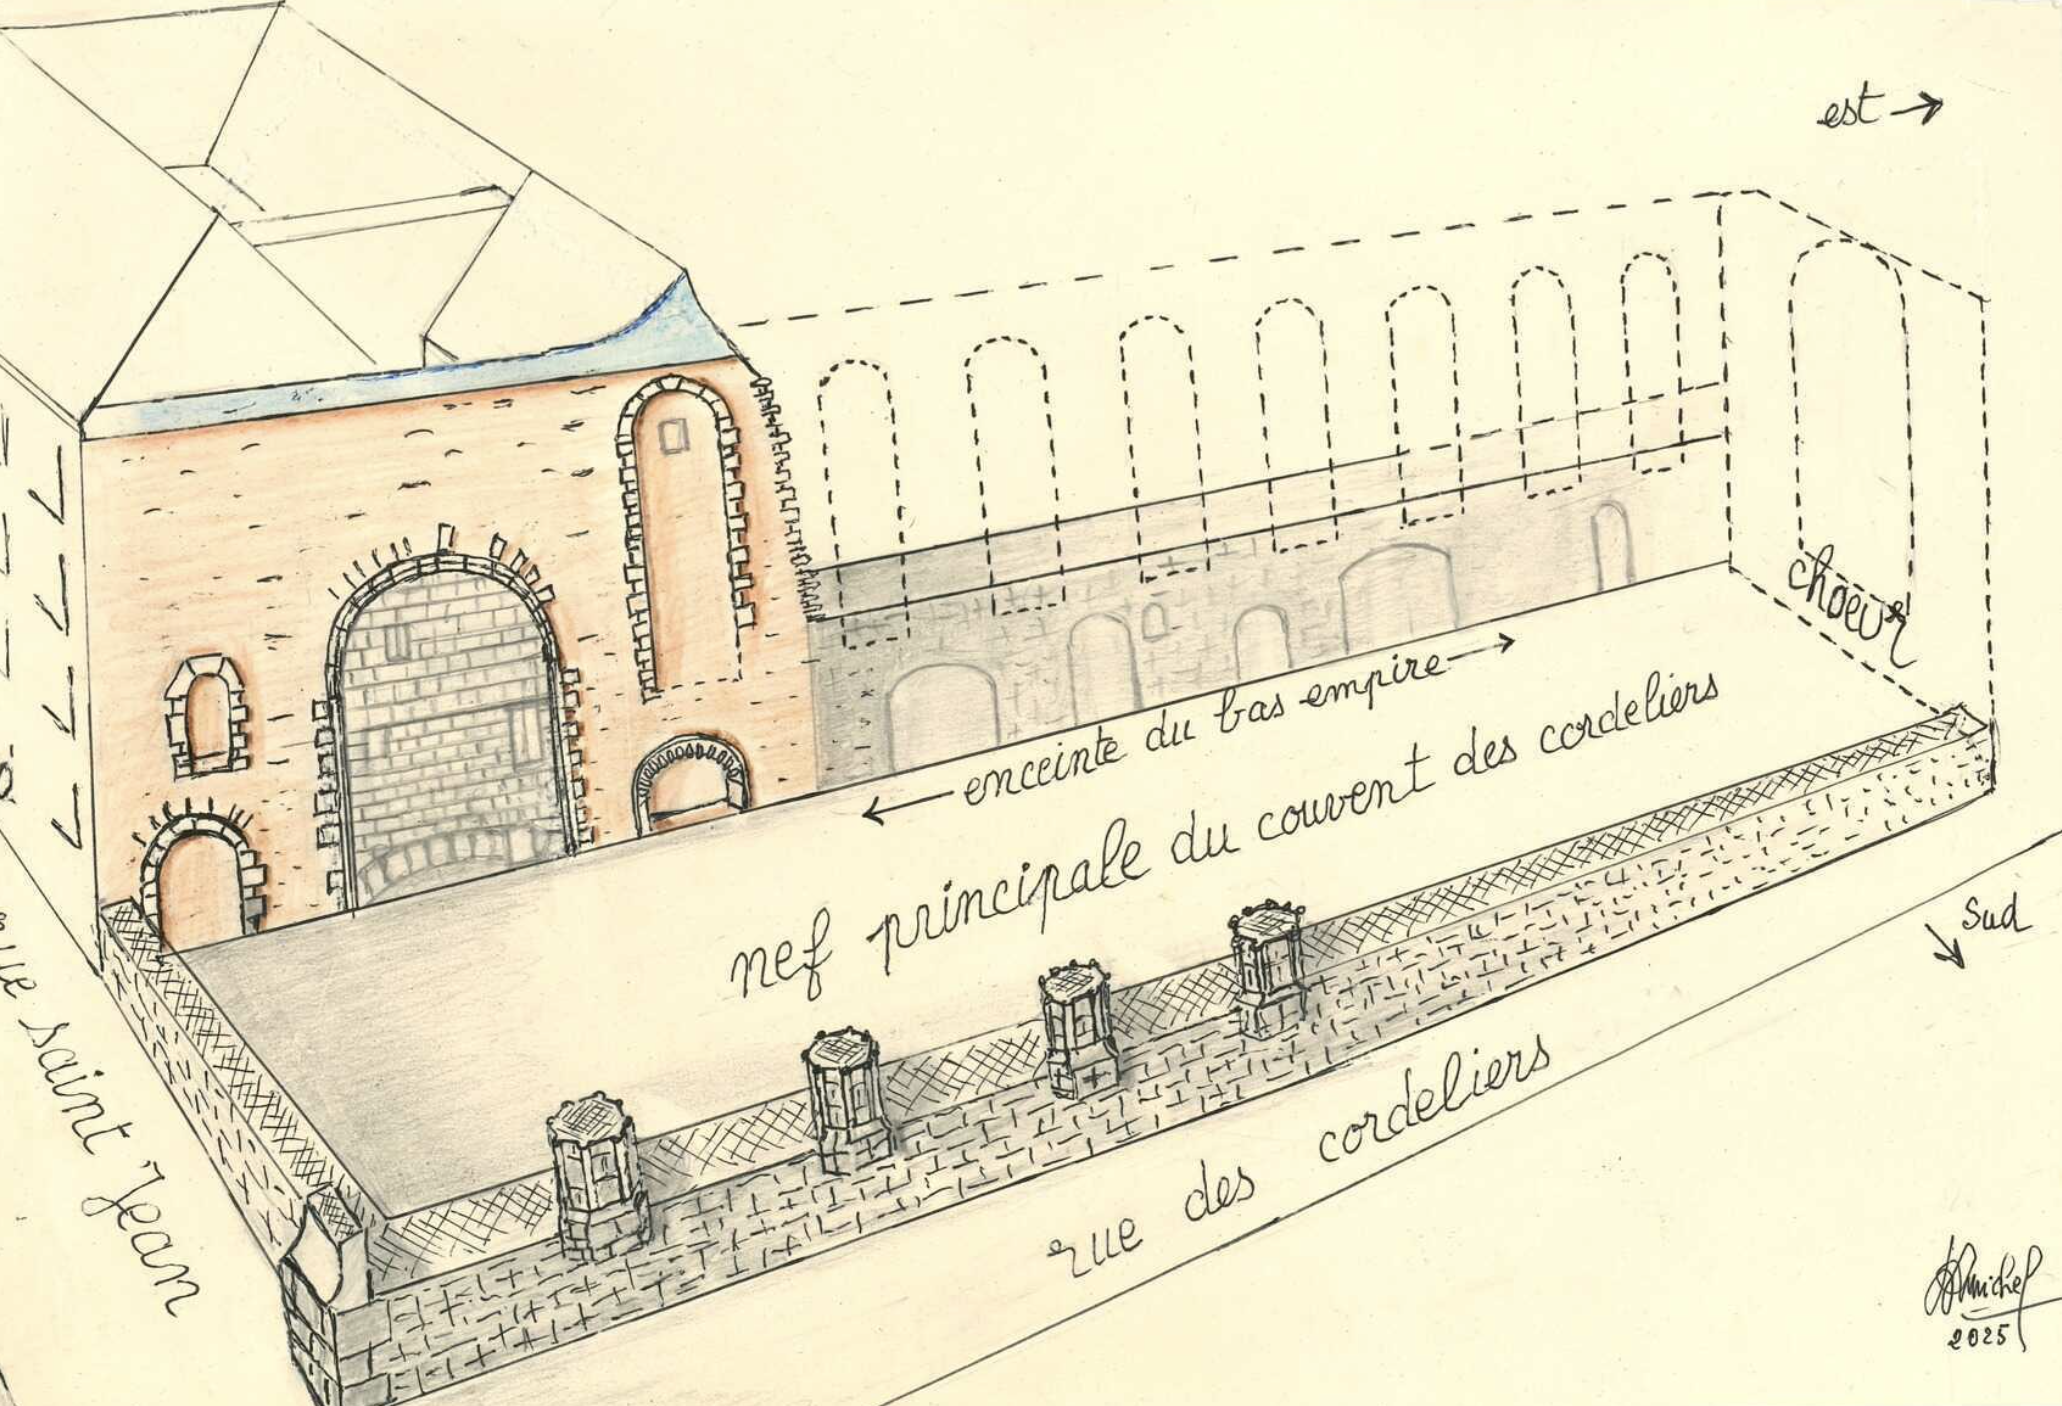 est
choeur
enceinte du bas empire
nef principale du couvent des cordeliers
sud
rue des cordeliers
saint Jean
2025